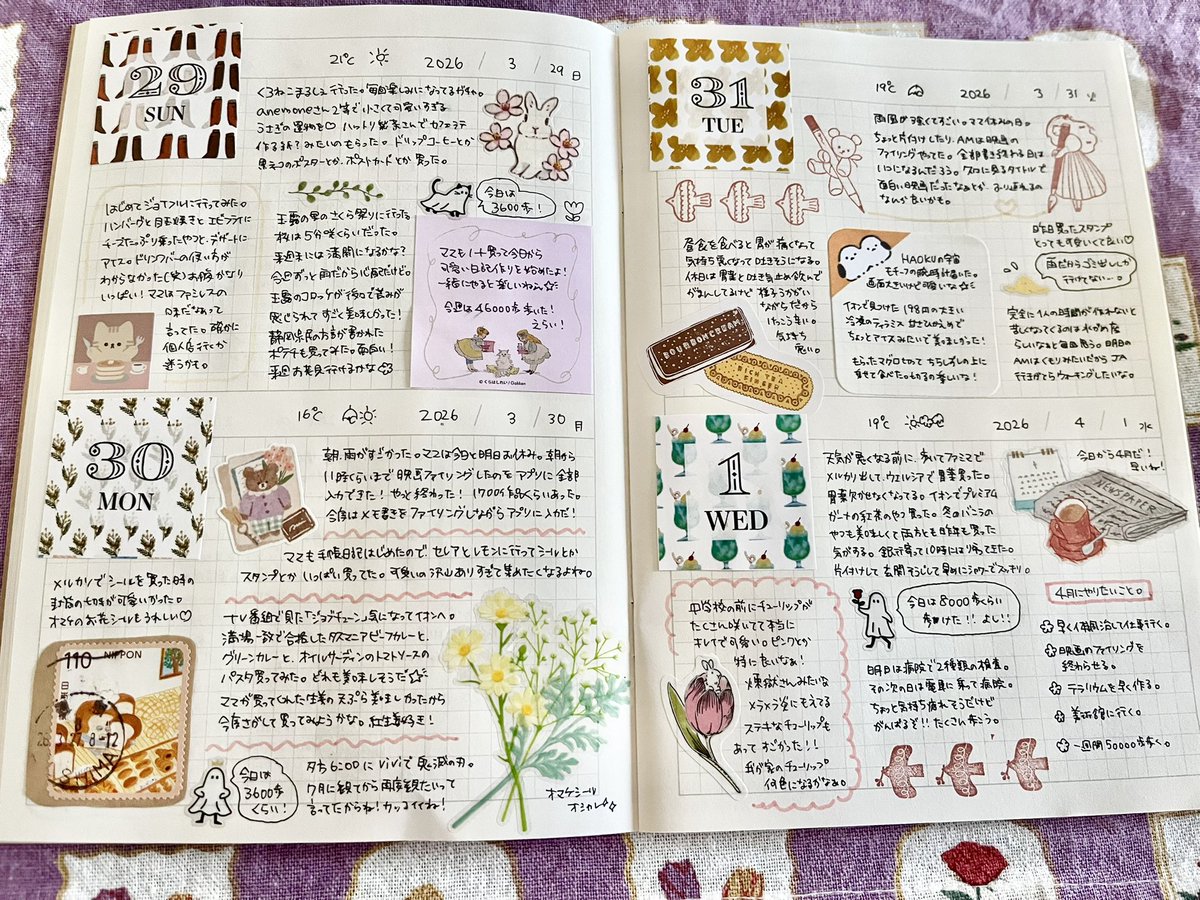 29
SUN
21℃
2026 / 3 / 29 日
くろねこまるしぇ行った。毎回楽しみになってるガチャ。
anemoneさん2等で小さくて可愛いすぎる
うさぎの置物を♡ ハットリ絵美さんでカフェラテ
作る?みたいのもらった。ドリップコーヒーとか
黒ネコのポスターとか、ポストカードとか買った。
はじめてジョイフルに行ってみた。
ハンバーグと目玉焼きとエビフライに
チーズたっぷり乗ったやつと、デザートに
アイス。ドリンクバーの使い方が
わからなかった(笑)お腹かなり
いっぱい!ママはファミレスの
味だなあって
言ってた。確かに
個人店行くか
迷うかも。
玉露の里のさくら祭りに行った
桜は5分咲くらいだった。
来週末には満開になるかな?
今週ずっと雨だから心配だけど。
玉露のコロッケが後口で苦みが
感じられてすごく美味しかった!
静岡県民の方言が書かれた
ポテチも買ってみた。面白い!
来週お花見行けるかな
今日は
3600歩!
ママもノート買って今日から
可愛い日記作りを始めたよ!
一緒にやると楽しいねぇ☆
今週は46000歩歩いた!
えらい!
© くらはしれい/Gakken
30
MON
16℃
2026 / 3 / 30 月
朝、雨がすごかった。ママは今日と明日お休み。朝から
11時くらいまで映画ファイリングしたのをアプリに全部
入力できた!やっと終わった!1700作品くらいあった。
今度はメモ書きをファイリングしながらアプリに入力だ!
ママも手帳日記はじめたので セレアとレモンに行ってシールとか
スタンプとか いっぱい買ってた。可愛いの沢山ありすぎて集めたくなるよね。
メルカリでシールを買った時の
封筒の切手が可愛いかった。
オマケのお花シールもうれしい♡
110 NIPPON
日本郵便
テレビ番組で見た「ジョブチューン」気になってイオンへ。
満場一致で合格したタスマニアビーフカレーと、
グリーンカレーと、オイルサーディンのトマトソースの
パスタ買ってみた。どれも美味しそうだ☆
ママが買ってくれた生姜の天ぷら美味しかったから
今度さがして買ってみようかな。紅生姜好き!
夕方6:00にViViで鬼滅の刃。
7月に観てから再度観たいって
言ってたからね!カッコイイね!
今日は
3600歩
くらい!
オマケシール
オシャレ☆
31
TUE
19℃
2026 / 3 / 31 火
雨風が強くてすごい。ママ休みの日。
ちょっと片付けしたり、AMは映画の
ファイリングやってた。全部書き終わる日は
いつになるんだろう。久々に見るタイトルで
面白い映画だったなぁとか、ふり返れるの
なんか良いかも。
昼食を食べると胃が痛くなって
気持ち悪くなって吐きそうになる。
休日は胃薬と吐き気止め飲んで
がまんしてるけど 様子うかがい
ながらだから
けっこう辛い。
気持ち
悪い。
BOURBON CREAM
RICH TEA
FINGER
HAOKUの宇宙
モチーフの腕時計届いた。
画面大きいけど可愛いな☆
イオンで見つけた198円の大きい
冷凍のティラミス 甘さひかえめで
ちょっとアイスみたいで美味しかった!
もらったマグロ切って ちらしずしの上に
乗せて食べた。切るの楽しいな!
昨日買ったスタンプ
とっても可愛くて良い♡
雨だからゴミ出ししか
行けてない〜。
完全に1人の時間が作れないと
苦しくなってくるのはわがまま
らしいなぁと毎回思う。明日の
AMはくもりみたいだからJA
行きがてらウォーキングしたいな。
1
WED
19℃
2026 / 4 / 1 水
今日から4月だ!
早いね!
天気が悪くなる前に、歩いてファミマで
メルカリ出して、ウエルシアで胃薬買った。
胃薬欠かせなくなってる。イオンでプレミアム
ガーナの紅茶のやつ買った。冬のバニラの
やつも美味しくて両方とも昨年も買った
気がする。銀行寄って10時には帰ってきた。
片付けして玄関そうじして早めにシャワーでスッキリ。
NEWSPAPER
中学校の前にチューリップが
たくさん咲いてて本当に
キレイで可愛い。ピンクとか
特に良いなぁ!
煉獄さんみたいな
メラメラ姿にもえてる
ステキなチューリップも
あってすごかった!!
我が家のチューリップ
何色になるかなぁ。
今日は8000歩くらい
歩けた!!よし!!
明日は病院で2種類の検査。
その次の日は電車に乗って病院。
ちょっと気持ち疲れそうだけど
がんばるぞ!!たくさん歩こう。
4月にやりたいこと。
早く体調治して仕事行く。
映画のファイリングを
終わらせる。
テラリウムを早く作る。
美術館に行く。
一週間50000歩歩く。